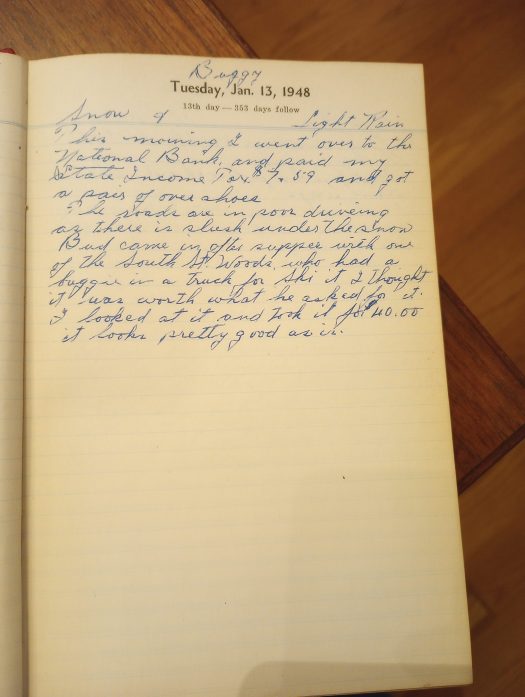 Buggy
Tuesday, Jan. 13, 1948
13th day — 353 days follow
Snow & Light Rain
This morning I went over to the
National Bank, and paid my
State Income Tax $7.59 and got
a pair of over shoes
The roads are in poor driveing
as there is slush under the snow
Bud came in after supper with one
of the South St. Woods, who had a
buggie in a truck for if I thought
it was worth what he asked for it.
I looked at it and took it for $40.00
it looks pretty good as is.